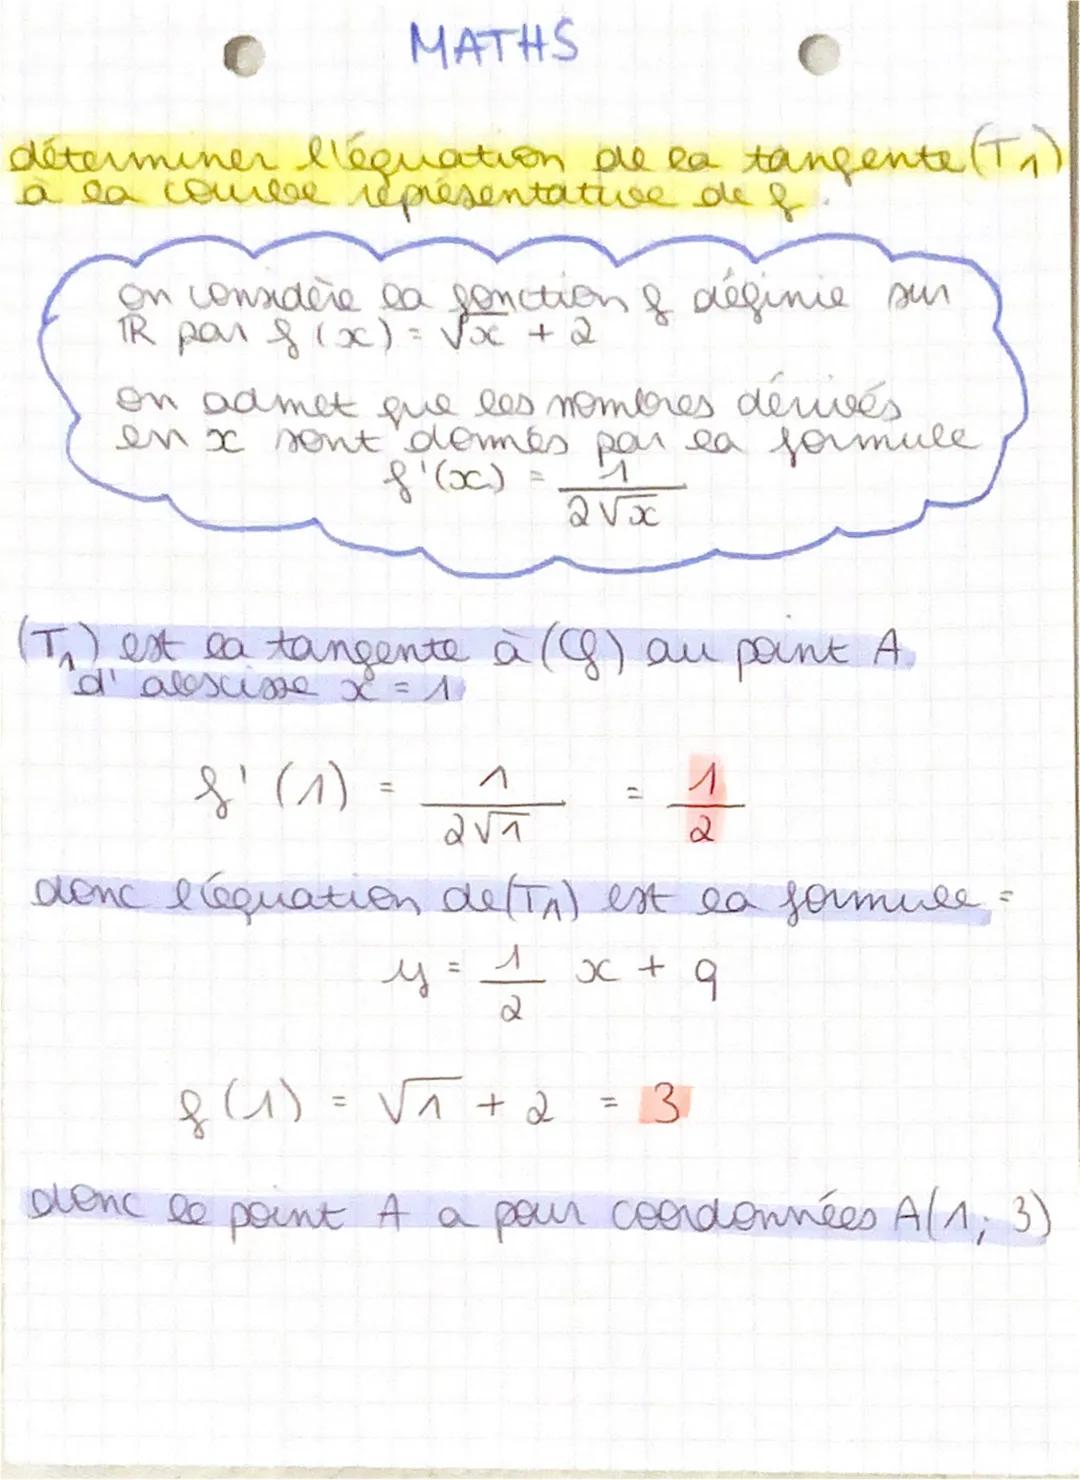 MATHS
déterminer l'équation de la tangente (T1)
à la courbe représentative de f.
on considère la fonction f définie sur
IR par f(x) = √x + 2
on admet que les nombres dérivés
en x sont donnés par la formule
f'(x) = 1/(2√x)
(T1) est la tangente à (Cf) au point A
d'abscisse x = 1
f'(1) = 1/(2√1) = 1/2
donc l'équation de (T1) est la formule =
y = 1/2 x + q
f(1) = √1 + 2 = 3
donc le point A a pour coordonnées A(1; 3)